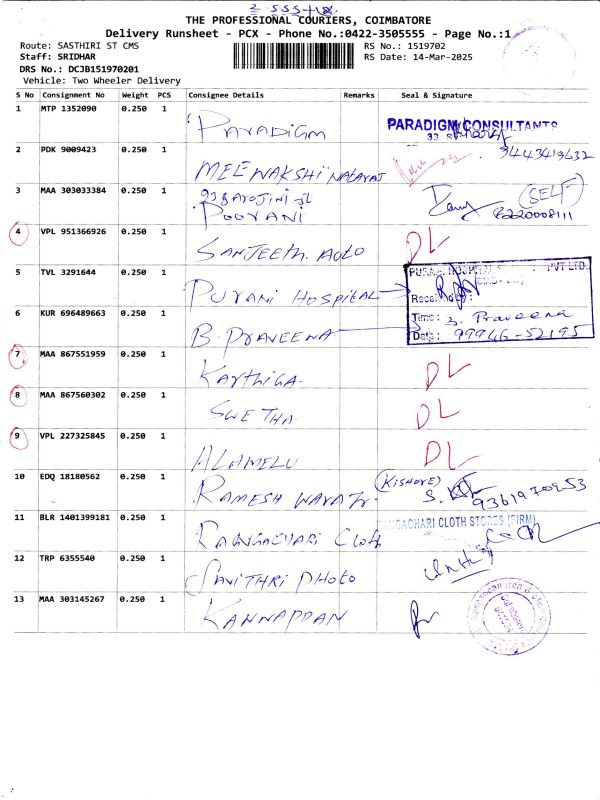 THE PROFESSIONAL COURIERS, COIMBATORE
Delivery Runsheet - PCX - Phone No.:0422-3505555 - Page No.:1
Route: SASTHIRI ST CMS RS No.: 1519702
Staff: SRIDHAR RS Date: 14-Mar-2025
DRS No.: DCJB151970201
Vehicle: Two Wheeler Delivery
S No Consignment No Weight PCS Consignee Details Remarks Seal & Signature
1 MTP 1352090 0.250 1 PARADIGM PARADIGM CONSULTANTS
2 PDK 9009423 0.250 1 MEENAKSHI NATARAJ 9443419632
3 MAA 303033384 0.250 1 POORANI (SELF) 8220008111
4 VPL 951366926 0.250 1 SANJEETH AUTO DL
5 TVL 3291644 0.250 1 PURANI HOSPITAL PVT LTD.
Received
6 KUR 696489663 0.250 1 B. PRAVEENA Time: B. Praveena
Date: 99946-52195
7 MAA 867551959 0.250 1 KARTHIGA DL
8 MAA 867560302 0.250 1 SWETHA DL
9 VPL 227325845 0.250 1 ALAMELU DL
10 EDQ 18180562 0.250 1 RAMESH (KISHORE)
11 BLR 1401399181 0.250 1 RANGACHARI Cloth ANGACHARI CLOTH STORES (FIRM)
12 TRP 6355540 0.250 1 SAVITHRI PHOTO
13 MAA 303145267 0.250 1 KANNAPPAN